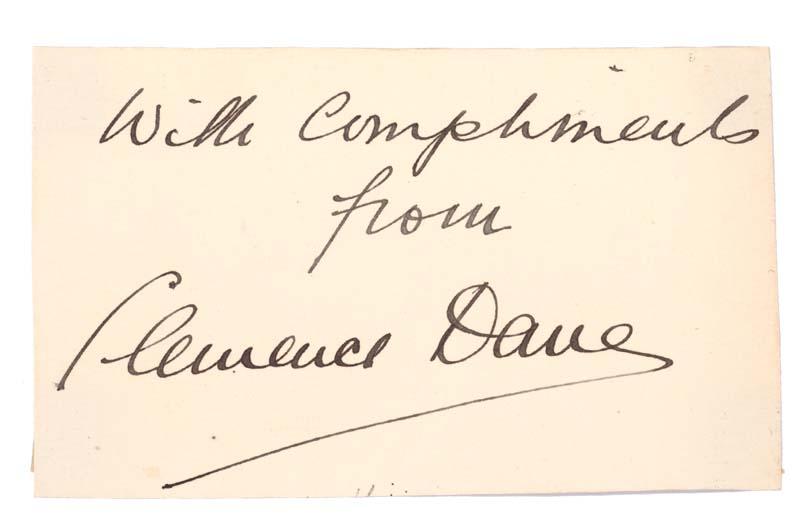 With Compliments
from
Clemence Dane